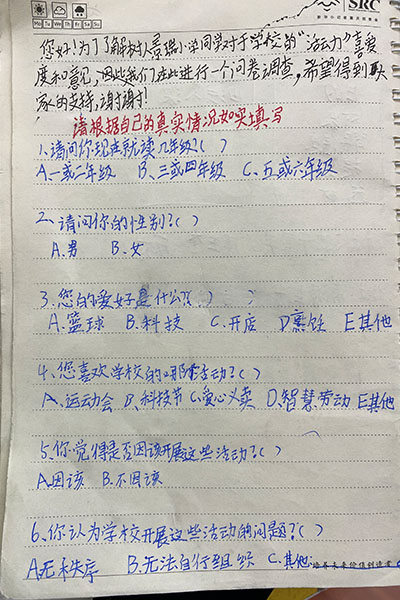 SRC
Mo Tu We Th Fr Sa Su
您好!为了了解树人景瑞小学同学对于学校的“活动力”喜爱
度和意见,因此我们在此进行一个问卷调查,希望得到大
家的支持,谢谢!
请根据自己的真实情况如实填写
1、请问你现在就读几年级?( )
A.一或二年级 B、三或四年级 C、五或六年级
2、请问你的性别?( )
A.男 B.女
3、您的爱好是什么?( )
A.篮球 B.科技 C.开店 D烹饪 E其他
4、您喜欢学校的哪个活动?( )
A.运动会 B、科技节 C、爱心义卖 D、智慧劳动 E其他
5、你觉得是否因该开展这些活动?( )
A因该 B.不因该
6、你认为学校开展这些活动的问题?( )
A无秩序 B.无法自行组织 C.其他:
培养未来价值创造者